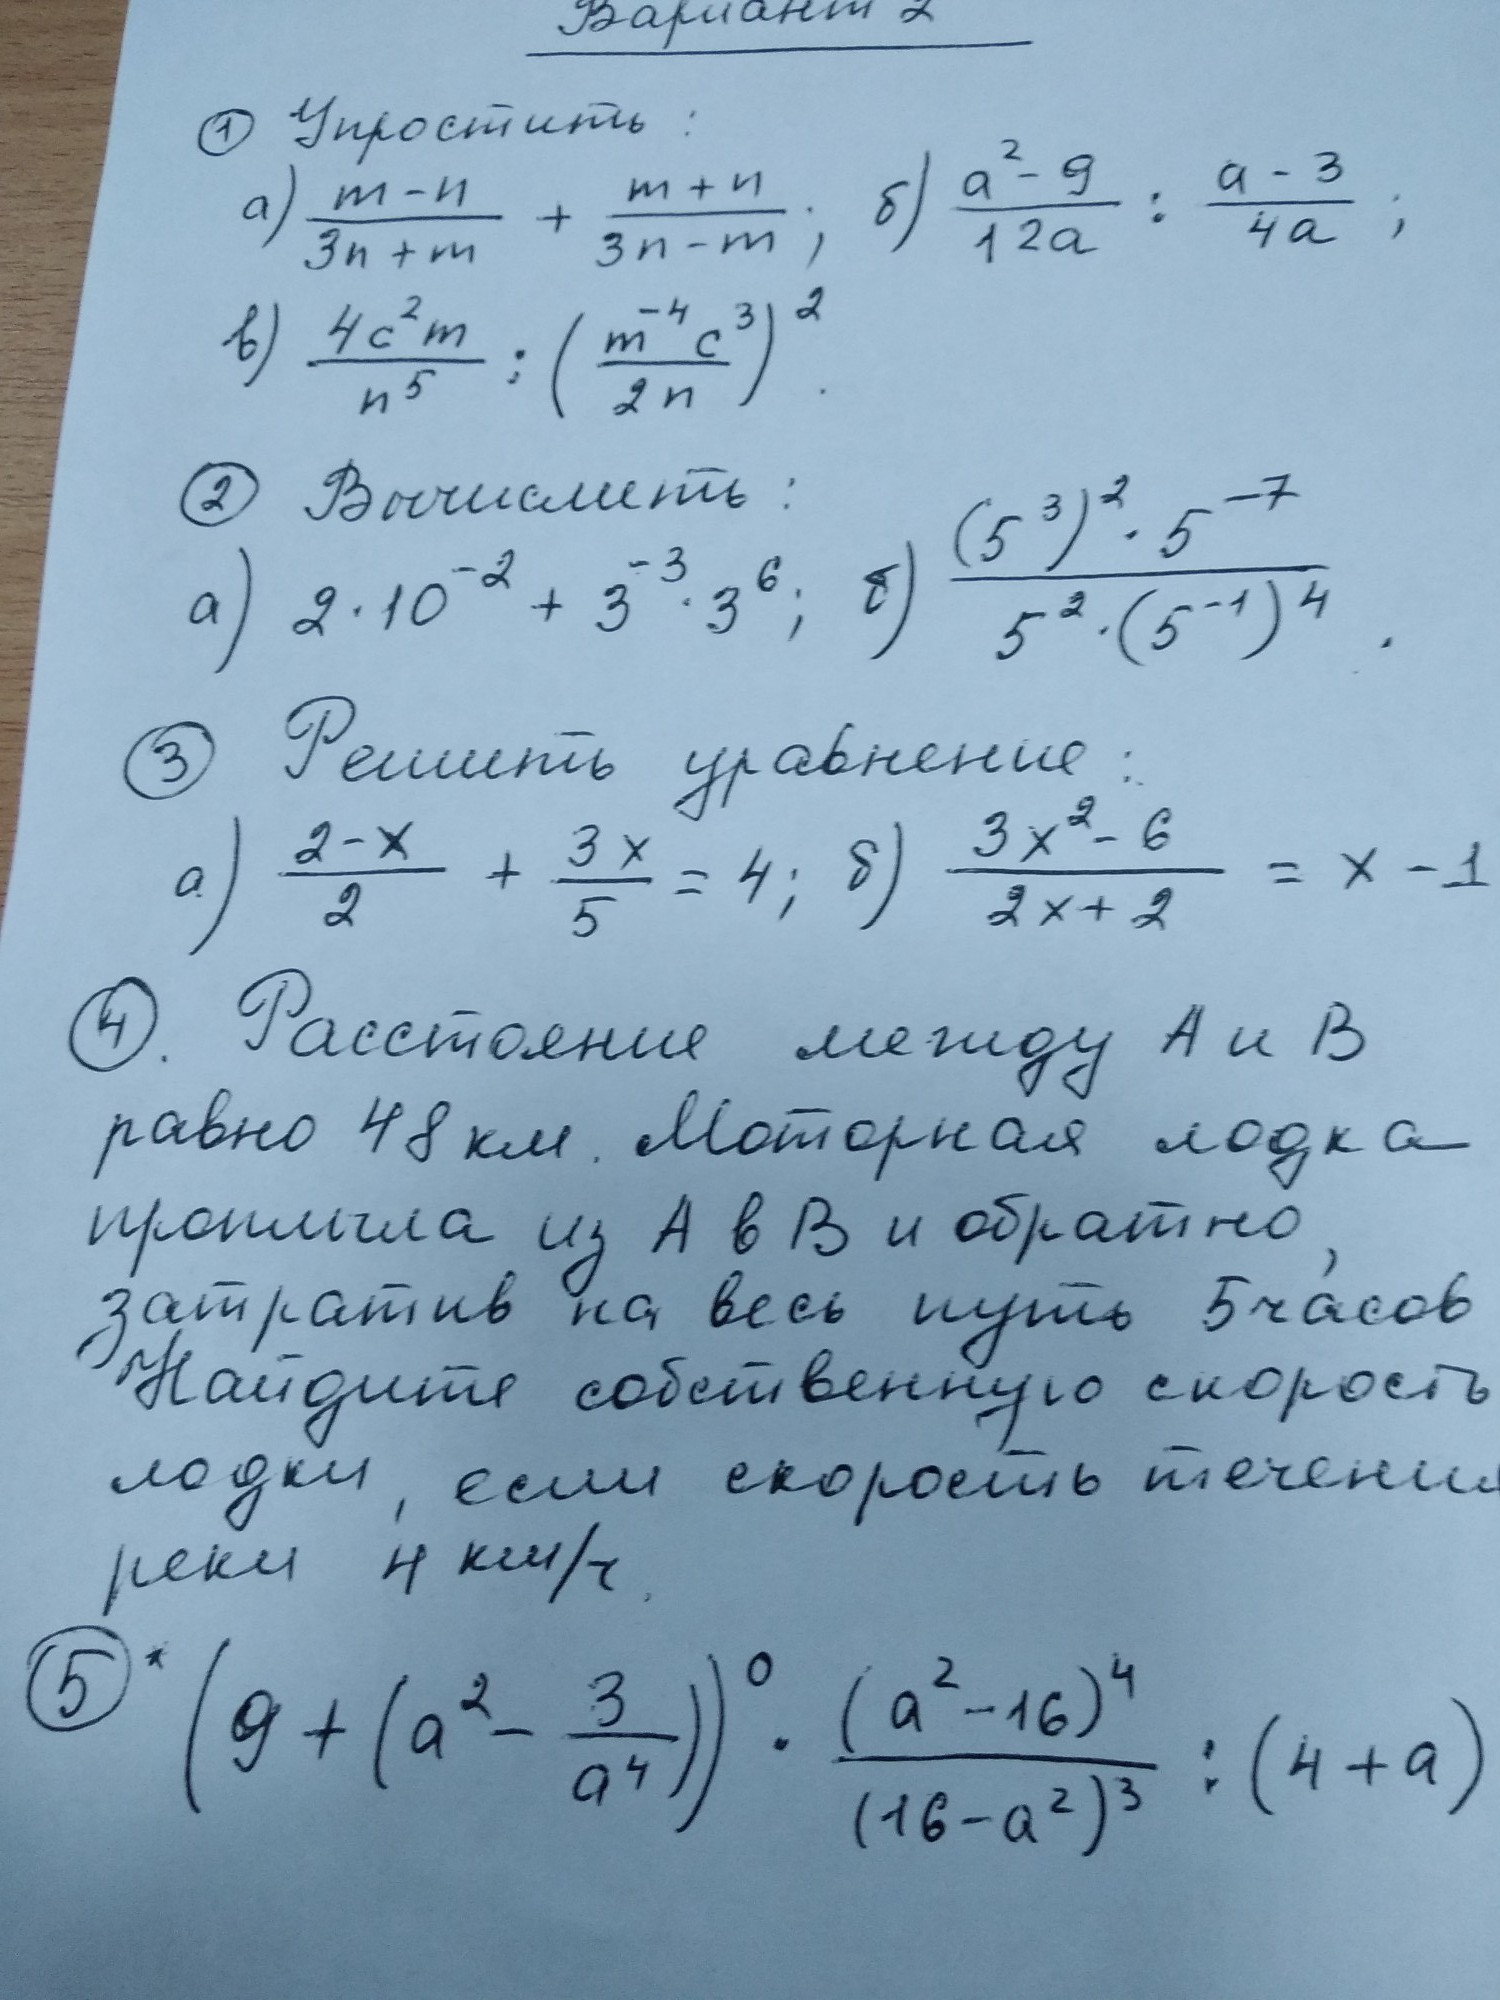 Вариант 2
① Упростить:
а) (m-n)/(3n+m) + (m+n)/(3n-m); б) (a²-9)/(12a) : (a-3)/(4a);
в) (4c²m)/(n⁵) : ((m⁻⁴c³)/(2n))².
② Вычислить:
а) 2·10⁻² + 3⁻³·3⁶; б) ((5³)²·5⁻⁷)/(5²·(5⁻¹)⁴).
③ Решить уравнение:
а) (2-x)/2 + (3x)/5 = 4; б) (3x²-6)/(2x+2) = x-1
④. Расстояние между А и В
равно 48 км. Моторная лодка
проплыла из А в В и обратно,
затратив на весь путь 5 часов
Найдите собственную скорость
лодки, если скорость течения
реки 4 км/ч.
⑤* (9+(a²-3/a⁴))⁰ · (a²-16)⁴/(16-a²)³ : (4+a)